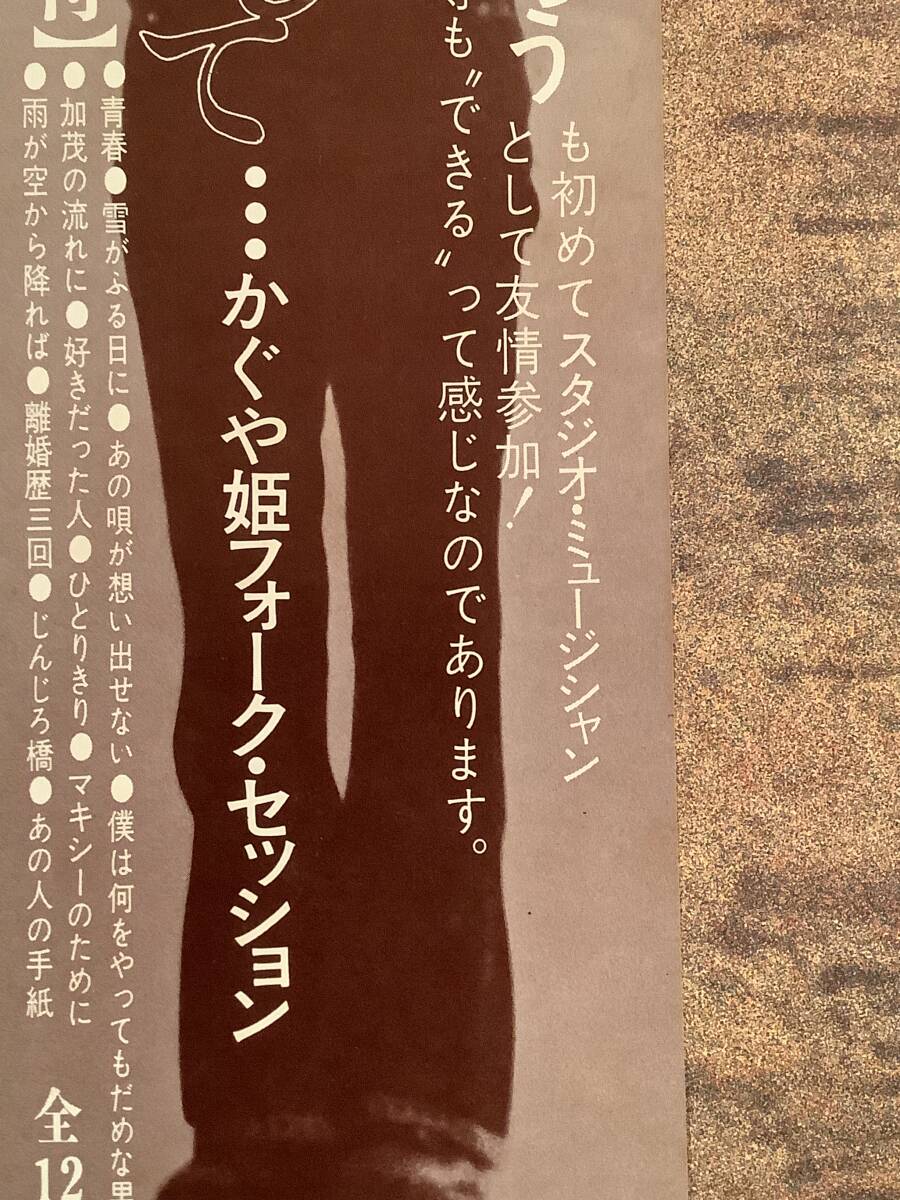 う
も初めてスタジオ・ミュージシャン
として友情参加!
も〝できる〟って感じなのであります。
て
…かぐや姫フォーク・セッション
付】
●青春●雪がふる日に●あの唄が想い出せない●僕は何をやってもだめな男
●加茂の流れに●好きだった人●ひとりきり●マキシーのために
●雨が空から降れば●離婚歴三回●じんじろ橋●あの人の手紙
全12